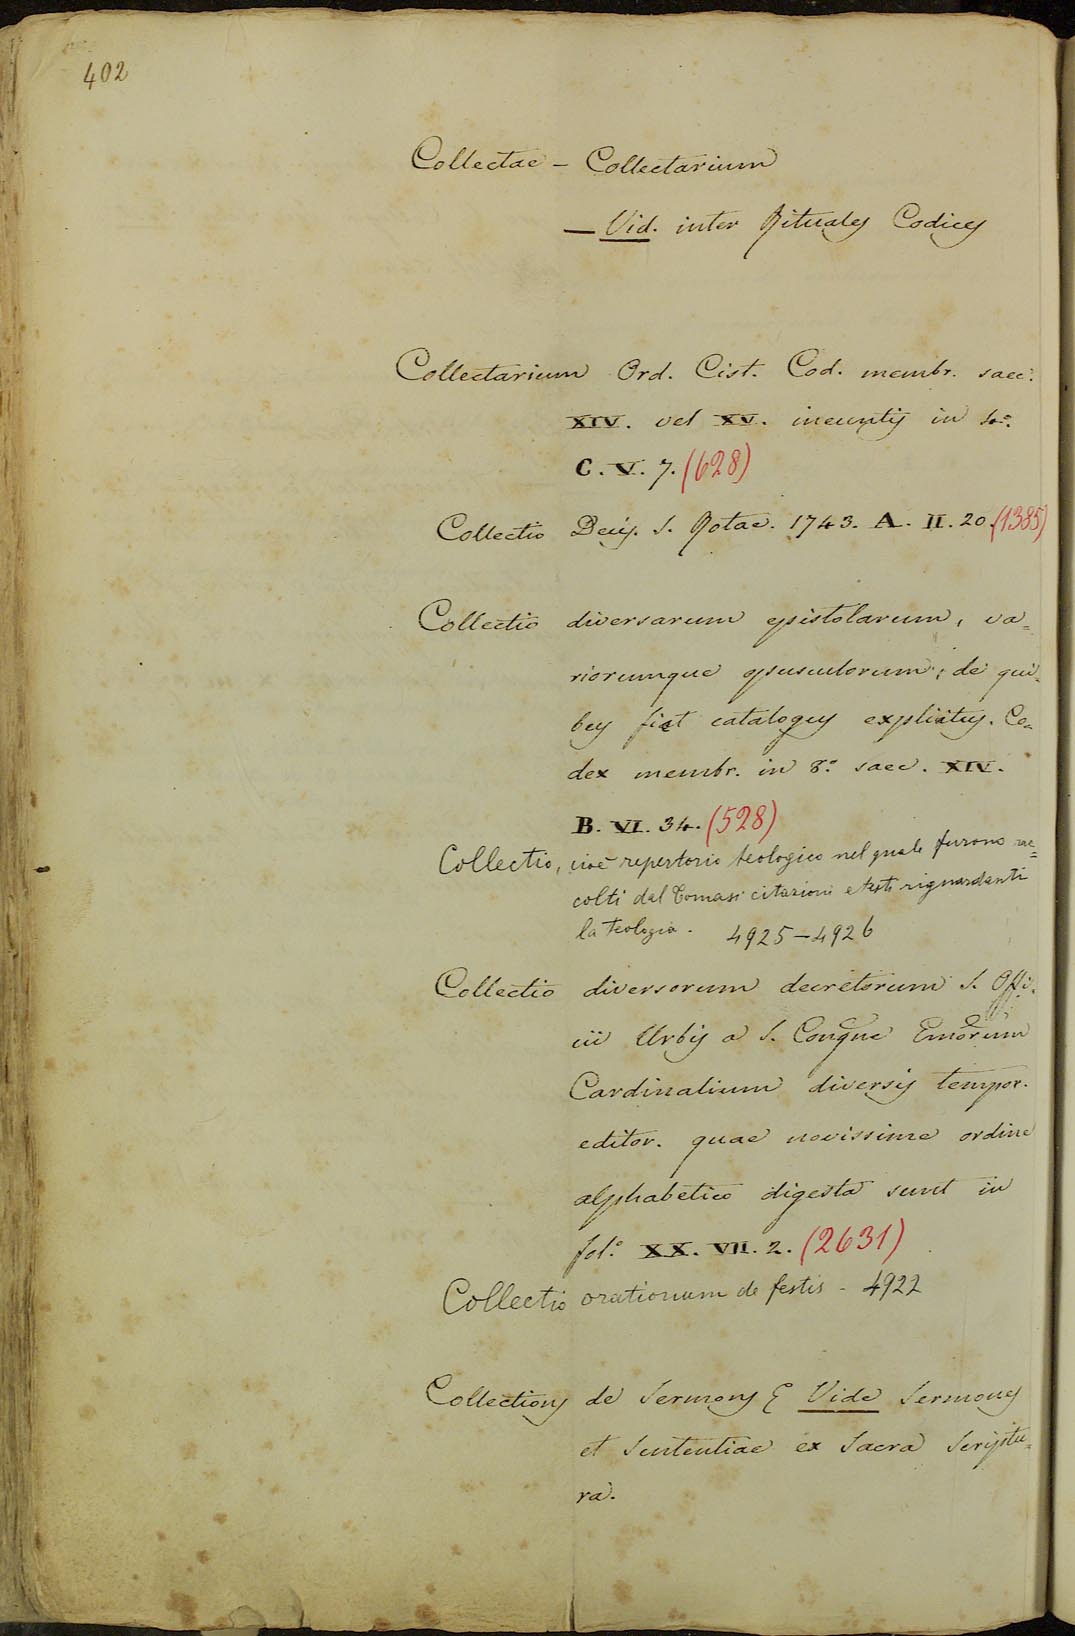 402
Collectae – Collectarium
— Vid. inter Rituales Codices
Collectarium Ord. Cist. Cod. membr. saec.
XIV. vel XV. ineuntis in
C. V. 7. (628)
Collectio Decis. S. Rotae. 1743. A. II. 20. (1385)
Collectio diversarum epistolarum, va=
riorumque opusculorum, de qui=
bus fiet catalogus explicitus. Co=
dex membr. in 8.º saec. XIV.
B. VI. 34. (528)
Collectio, cioè repertorio teologico nel quale furono rac=
colti dal Tomasi citazioni e testi riguardanti
la teologia. 4925–4926
Collectio diversorum decretorum S. Offi=
cii Urbis a S. Congne Emorum
Cardinalium diversis tempor.
editor. quae novissime ordine
alphabetico digesta sunt in
fol.º XX. VII. 2. (2631)
Collectio orationum de festis - 4922
Collections de Sermons Vide Sermones
et Sententiae ex Sacra Scriptu=
ra.